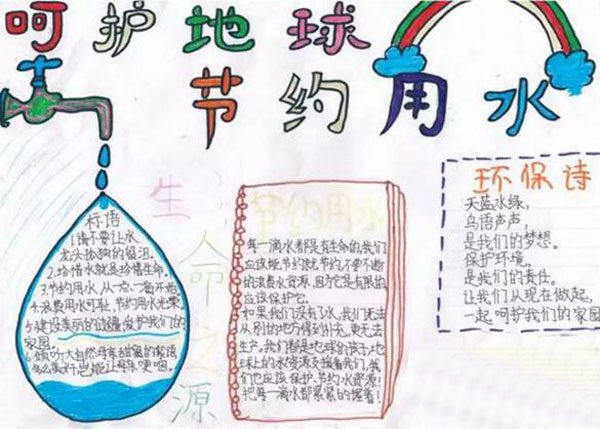 呵护地球
节约用水
标语
1.请不要让水
龙头
2.珍惜水就是珍惜生命。
3.节约用水,从一点一滴开始
4.浪费用水可耻,节约用水光荣
5.建设美丽的 爱护我们的
家园
6.倾听大自然母亲甜蜜的
怎么 能让母亲哽咽。
生命之源
节约用水
每一滴水都是有生命的,我们
应该能节约就节约,不要不断
的浪费水资源,因为它是有限的
应该保护它。
如果我们没有了水,我们无法
从别的地方得到补充,更无法
生产。我们都是地球的孩子,地
球上的水资源支援着我们,我
们也应该保护、节约水资源!
把每一滴水都紧紧的握着!
环保诗
天蓝水绿,
鸟语声声,
是我们的梦想。
保护环境,
是我们的责任。
让我们从现在做起,
一起呵护我们的家园